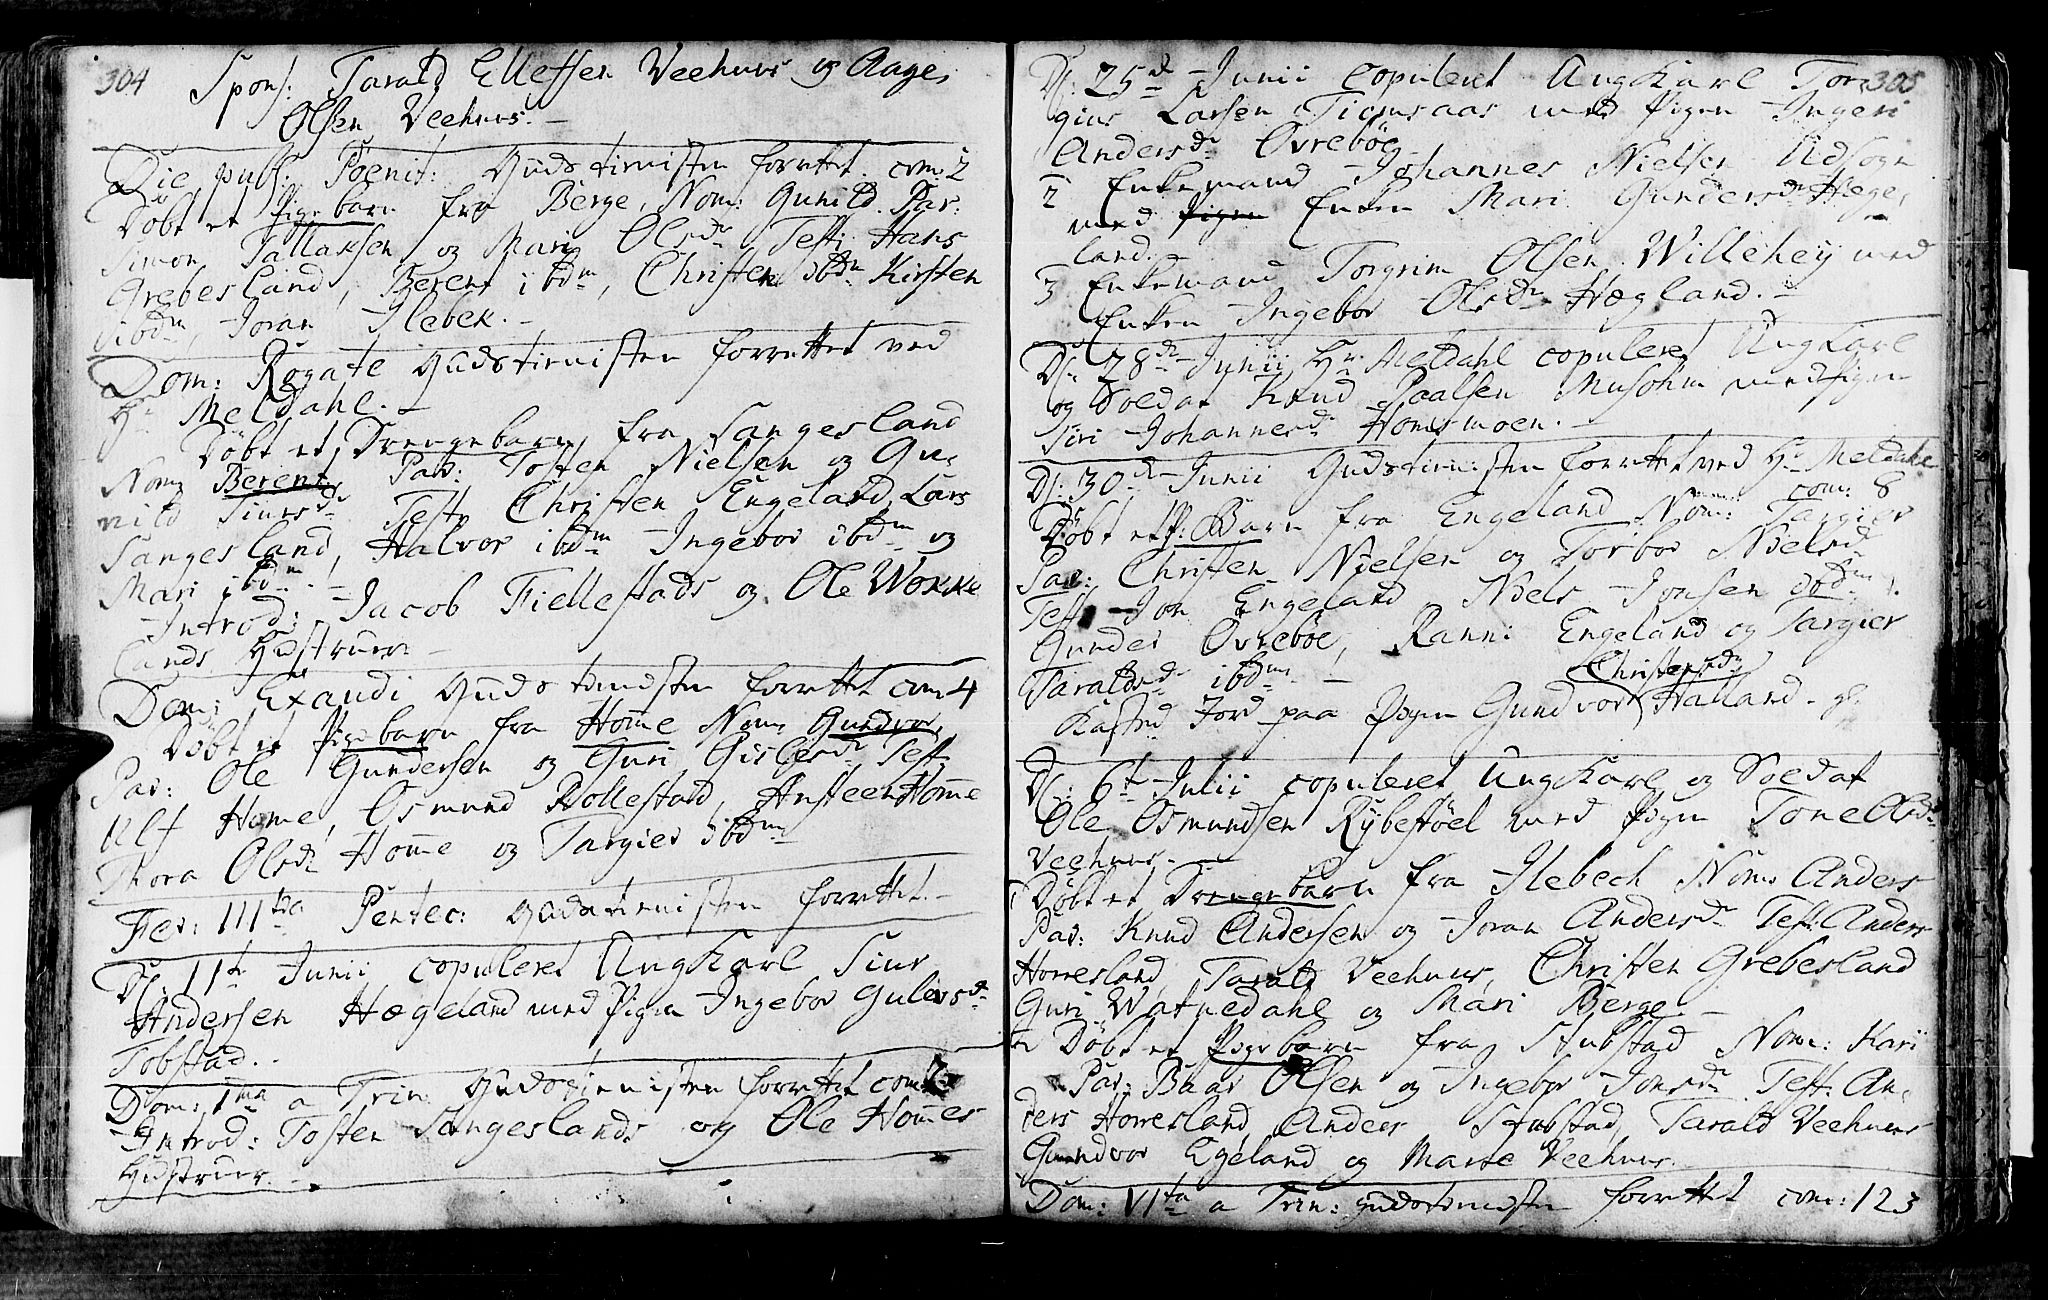 304
Spons: Tarald Ellefsen Veehuus og Aage
Olsen Veehuus.
Die publ: Poenit: Gudstienisten forrettet. com: 2
Döbt et Pigebarn fra Berge, Nom: Gunild. Par:
Simon Tallaksen og Mari Olsdr Test: Hans
Grebesland, Berent ibdm, Christen ibdm Kirsten
ibdm, Joran Ilebek.
Dom: Rogate Gudstienisten forrettet ved
Hr Meldahl.
Döbt et Drengebarn fra Sangesland
Nom: Berent Par: Tosten Nielsen og Gu-
nild Siursdr Test: Christen Engeland, Lars
Sangesland, Halvor ibdm Ingebor ibdm og
Mari ibdm.
Introd: Jacob Fiellestads og Ole Wokke
lands Hustruer.
Dom: Exaudi Gudstienisten forrettet com 4
Döbt et Pigebarn fra Homme Nom: Gundvor
Par: Ole Gundersen og Guri Gislesdr Test:
Ulf Home, Osmund Rollestad, Ansteen Homme
Thora Olsdr Homme og Targier ibdm
Fer: IIItia Pentec: Gudstienisten forrettet.
D: 11te Junii copuleret Ungkarl Siur
Andersen Hægeland med Pigen Ingebor Gulovsdr
Tobstad.
Dom: 1ma a Trin: Gudstienisten forrettet com:
Introd: Tosten Sangeslands og Ole Hommes
Hustruer.
305
D: 25de Junii copuleret Ungkarl Tor
gius Larsen Tiomsaas med Pigen Ingeri
Andersdr Övreböe
2 Enkemand Johannes Nielsen Udsogn
med Pigen Enken Mari Gundersdr Hæge
land.
3 Enkemand Torgrim Olsen Willehey med
Enken Ingebor Olsdr Hægland.
D: 28de Junii Hr: Meldahl copuleret Ungkarl
og Soldat Knud Paalsen Musohm med Pigen
Siri Johannesdr Homsmoen.
D: 30de Junii Gudstienisten forrettet ved Hr Meldahl
com: 8
Döbt et P: Barn fra Engeland Nom: Targier
Par: Christen Nielsen og Torbor Nielsdr
Test: Jon Engeland Niels Jonsen ibdm.
Gunder Övreböe, Ranni Engeland og Targier
Taraldsdr ibdm.
Christensdr
Kasted Jord paa Pigen Gundvor Halland.
D: 6te Julii copuleret Ungkarl og Soldat
Ole Osmundsen Rybestöel med Pigen Tone Olsdr
Veehuus.
Döbt et Drengebarn fra Ilebech Nom: Anders
Par: Knud Andersen og Joran Andersdr Test: Anders
Horresland, Tarald Veehuus, Christen Grebesland
Guri Watnedahl og Mari Berge.
Döbt et Pigebarn fra Stubstad Nom: Kari
Par: Baar Olsen og Ingebor Jonsdr Test: An-
ders Horresland, Anders Stubstad, Tarald Veehuus
Gundvor Egeland og Marte Veehuus.
Dom: VIta a Trin: Gudstienisten forrettet com: 123